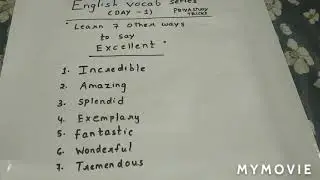 English vocab series
(DAY - 1)
Learn 7 other ways
to say
Excellent
1. Incredible
2. Amazing
3. Splendid
4. Exemplary
5. Fantastic
6. Wonderful
7. Tremendous
MYMOVIE